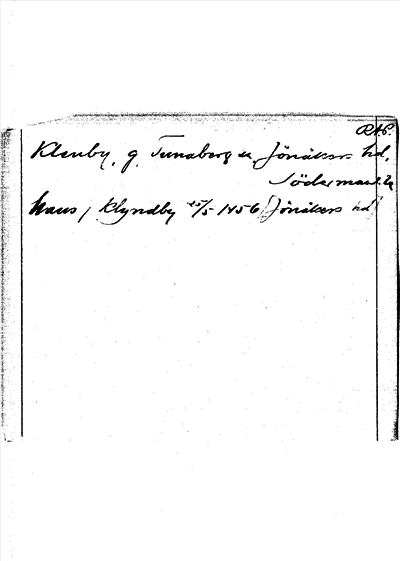 RAP.
Klenby, g. Tunaberg sn Jönåkers hd,
Södermanl. l.
haus / Klyndby 25/5 1456 (Jönåkers hd)